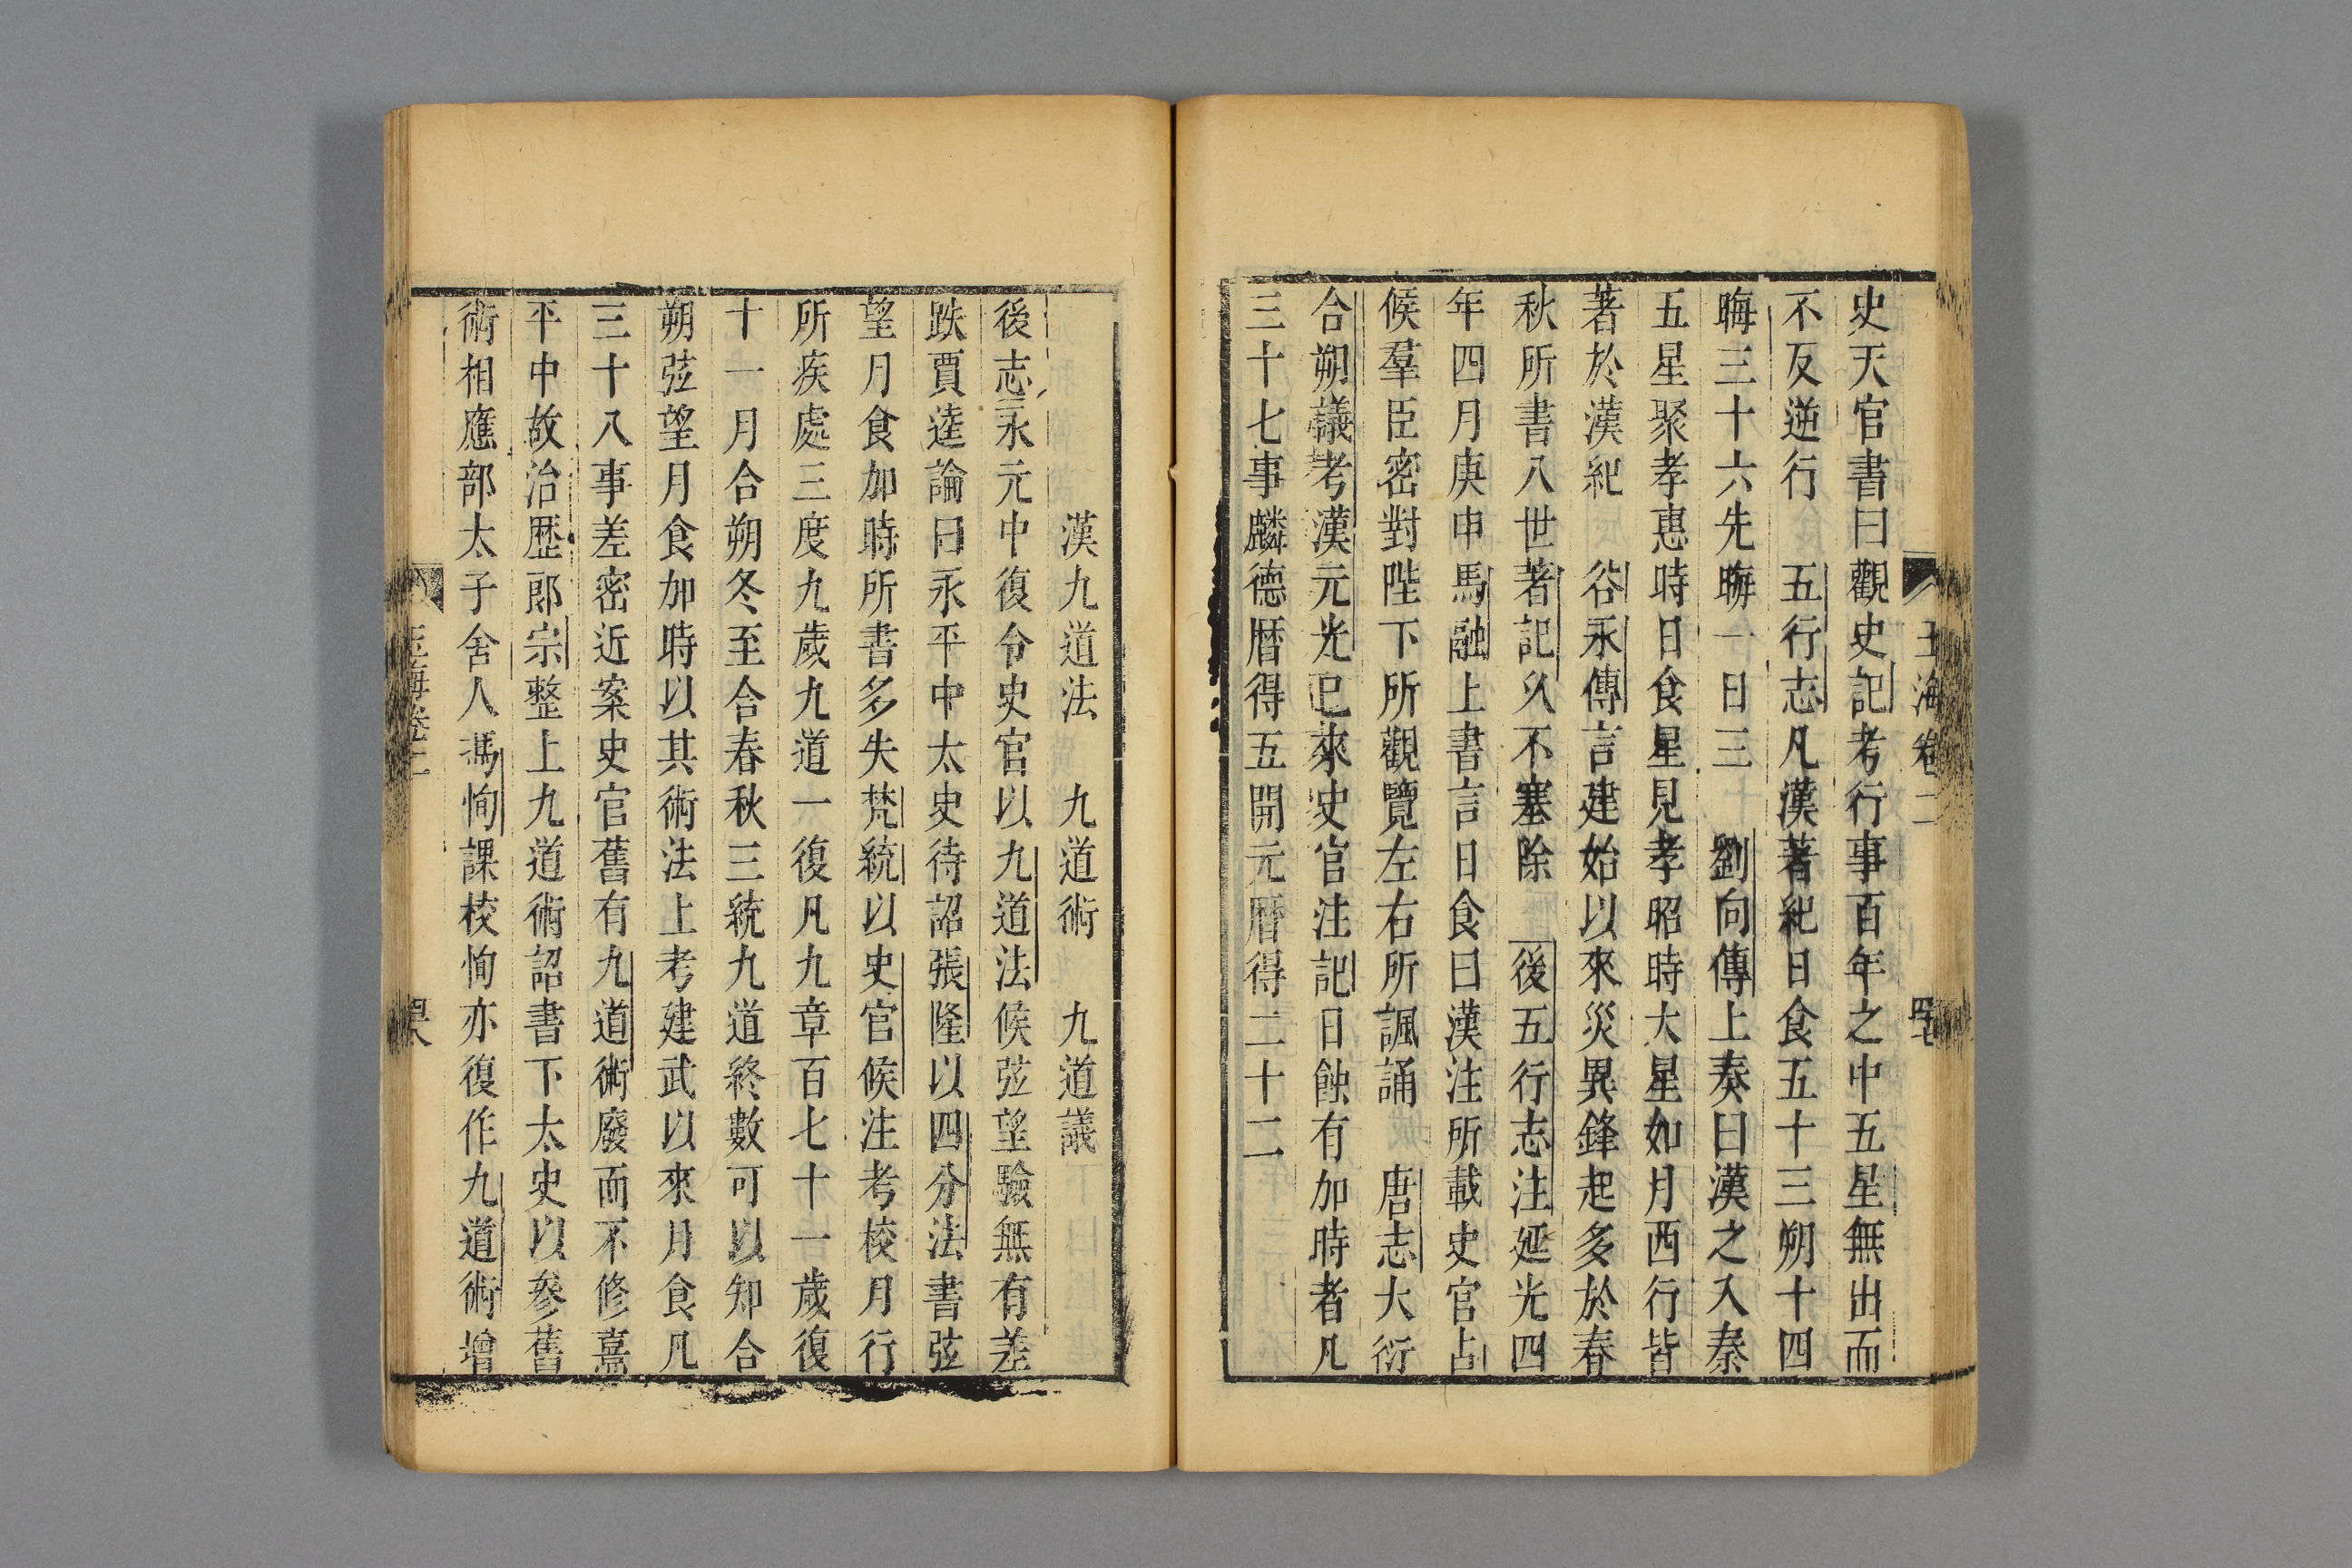 玉海卷二 四七
史天官書曰觀史記考行事百年之中五星無出而
不反逆行 五行志凡漢著紀日食五十三朔十四
晦三十六先晦一日三 劉向傳上奏曰漢之入秦
五星聚孝惠時日食星見孝昭時大星如月西行皆
著於漢紀 谷永傳言建始以來災異鋒起多於春
秋所書八世著記久不塞除 後五行志注延光四
年四月庚申馬融上書言日食曰漢注所載史官占
候羣臣密對陛下所觀覽左右所諷誦 唐志大衍
合朔議考漢元光已來史官注記日蝕有加時者凡
三十七事麟德曆得五開元曆得二十二
漢九道法 九道術 九道議
後志永元中復令史官以九道法候弦望驗無有差
跌賈逵論曰永平中太史待詔張隆以四分法書弦
望月食加時所書多失梵統以史官候注考校月行
所疾處三度九歲九道一復凡九章百七十一歲復
十一月合朔冬至合春秋三統九道終數可以知合
朔弦望月食加時以其術法上考建武以來月食凡
三十八事差密近案史官舊有九道術廢而不修熹
平中故治歷郎宗整上九道術詔書下太史以參舊
術相應部太子舍人馮恂課校恂亦復作九道術增
玉海卷二